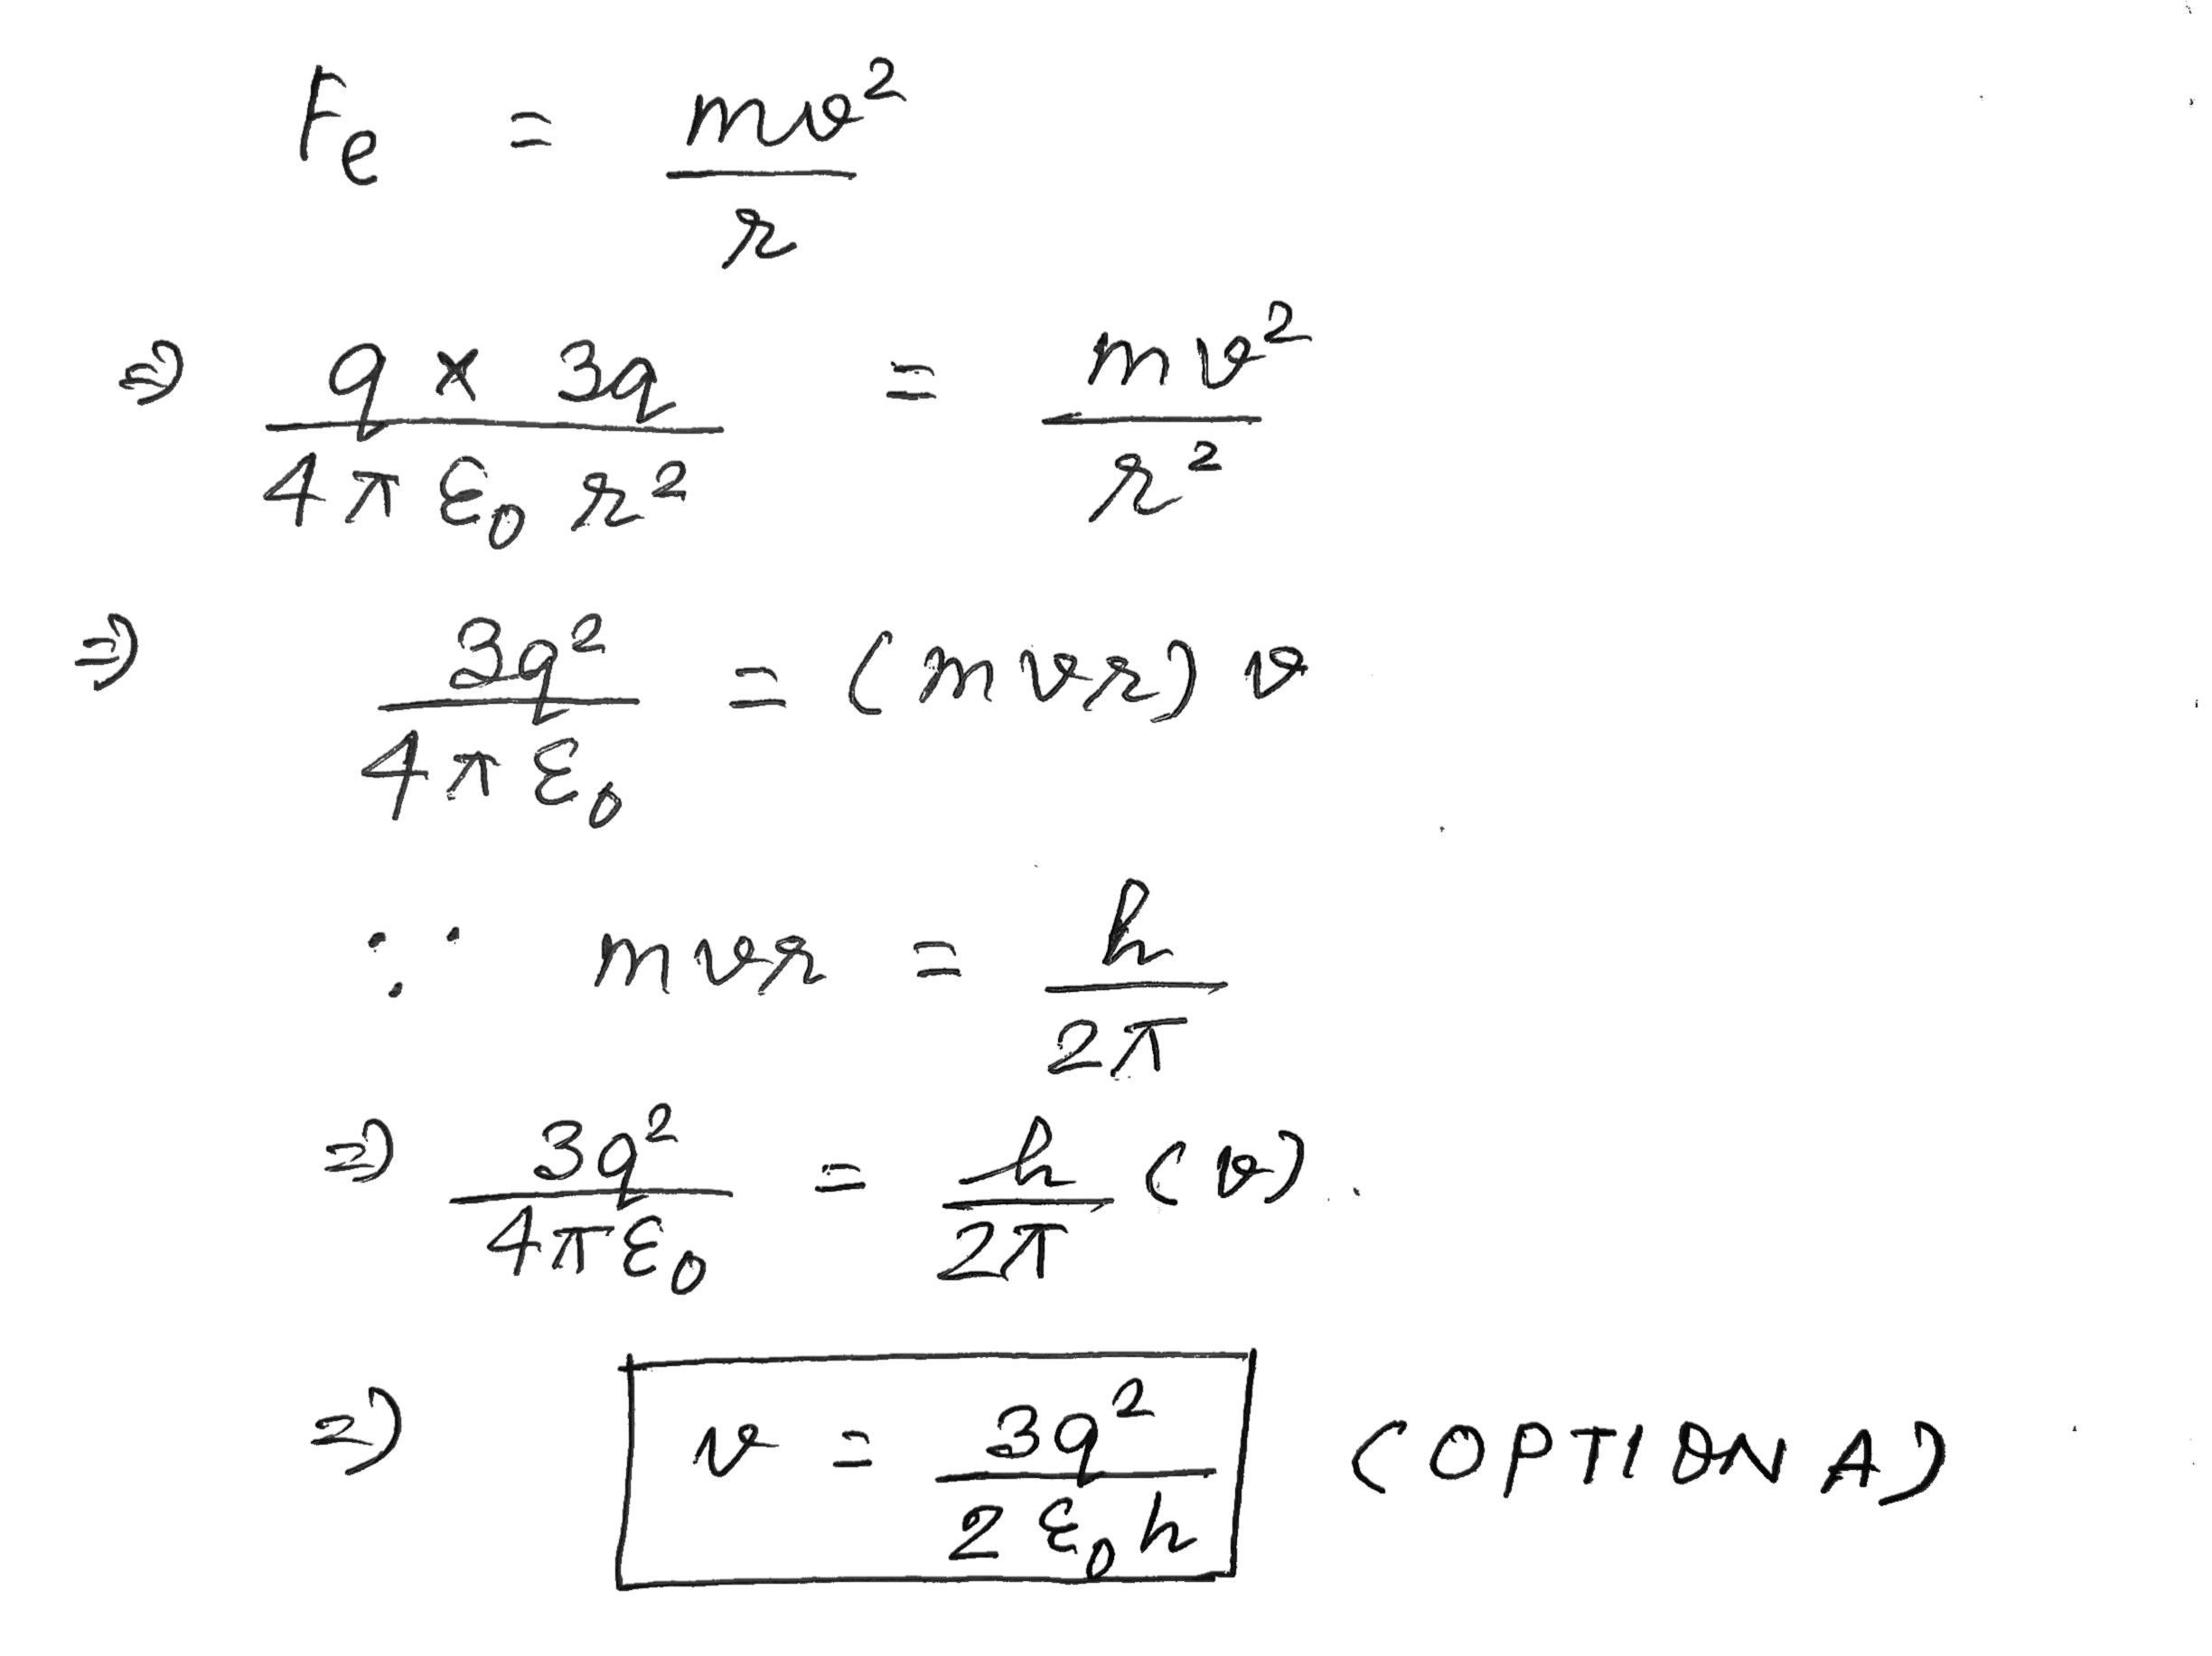 Fe = mv²/r
⇒ q × 3q / 4π ε₀ r² = mv²/r²
⇒ 3q²/4π ε₀ = (mvr) v
∵ mvr = h/2π
⇒ 3q²/4πε₀ = h/2π (v).
⇒ v = 3q²/2 ε₀ h (OPTION A)